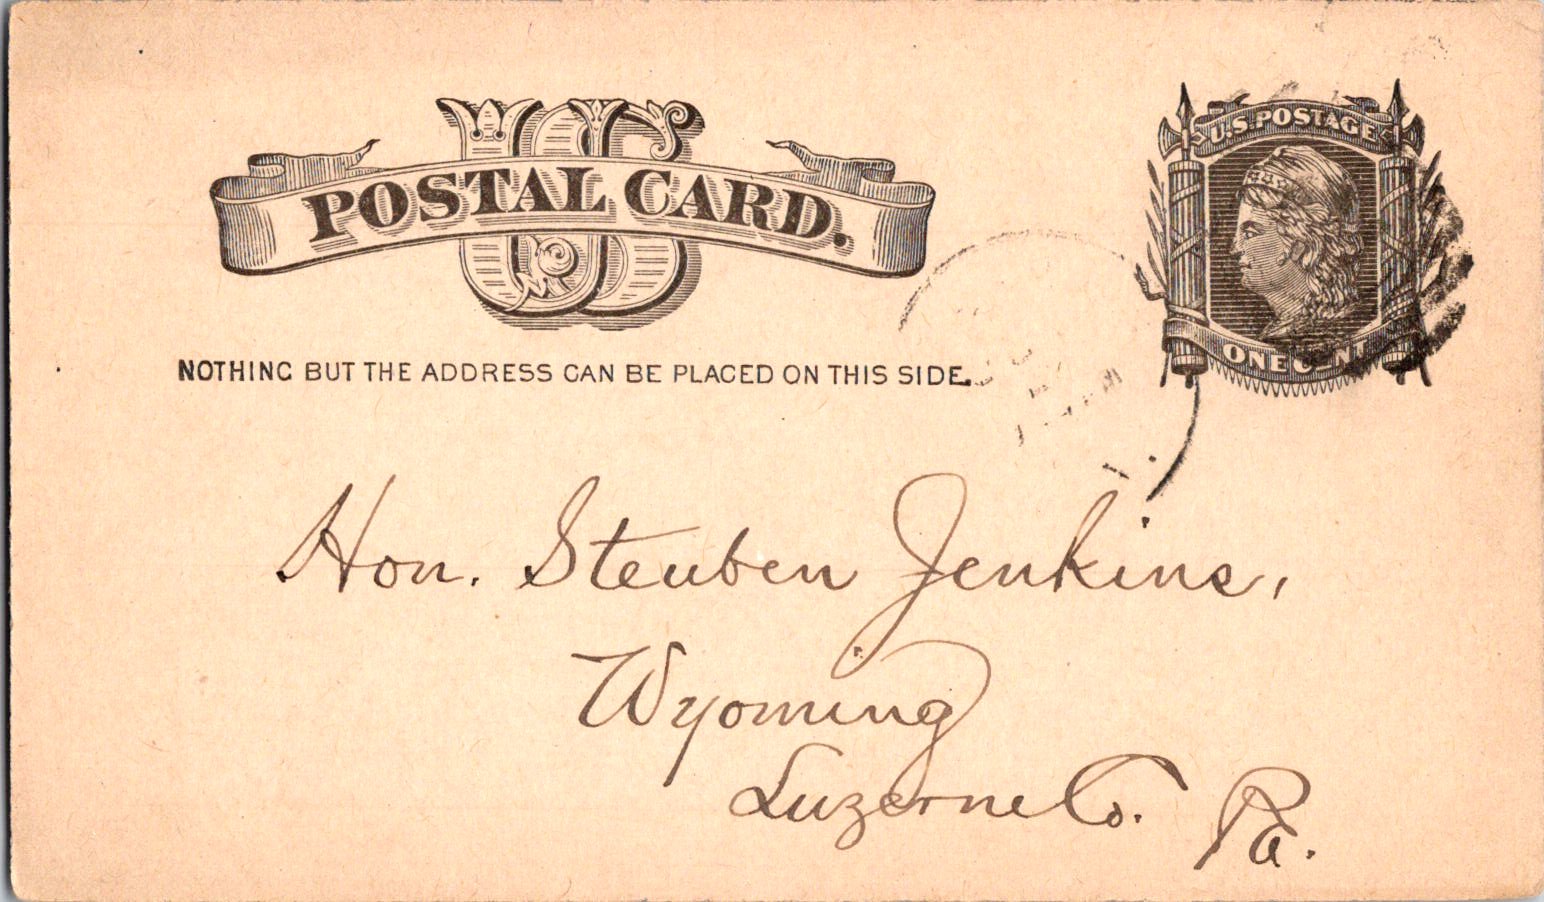 US
POSTAL CARD.
U.S. POSTAGE
ONE CENT
NOTHING BUT THE ADDRESS CAN BE PLACED ON THIS SIDE.
Hon. Steuben Jenkins,
Wyoming
Luzerne Co. Pa.